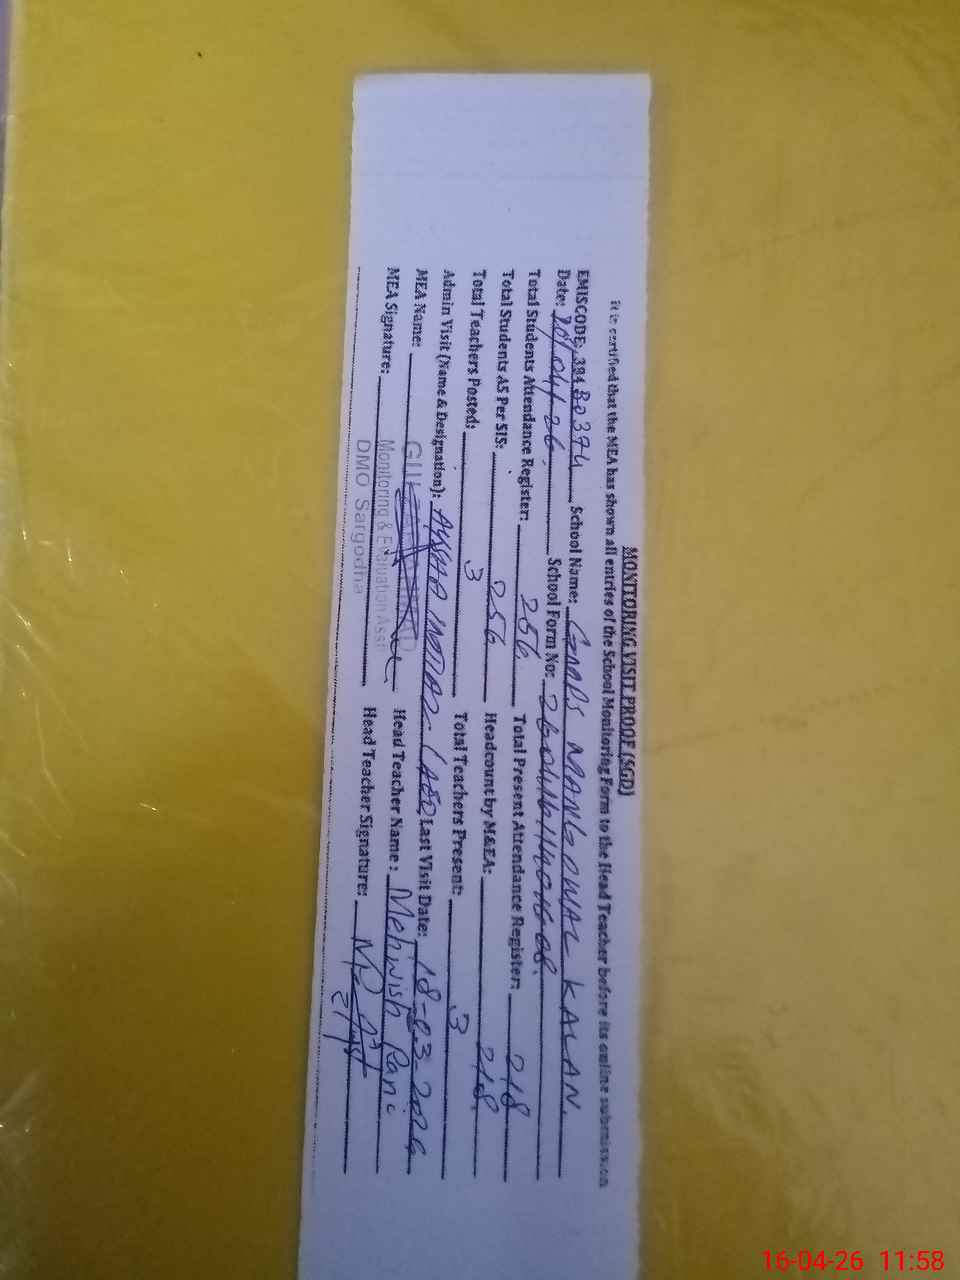 MONITORING VISIT PROOF (SGD)
It is certified that the MEA has shown all entries of the School Monitoring Form to the Head Teacher before its online submission
EMISCODE: 38430374 School Name: GGPS MANGOWAL KALAN.
Date: /04/26 School Form No:
Total Students Attendance Register: 256 Total Present Attendance Register: 218
Total Students AS Per SIS: 256 Headcount by M&EA: 218
Total Teachers Posted: 3 Total Teachers Present: 3
Admin Visit (Name & Designation): (AEO) Last Visit Date: 18-03-2026
MEA Name: Head Teacher Name: Mehwish Rani
MEA Signature: Head Teacher Signature:
Monitoring & Evaluation Asst
DMO Sargodha
16-04-26 11:58